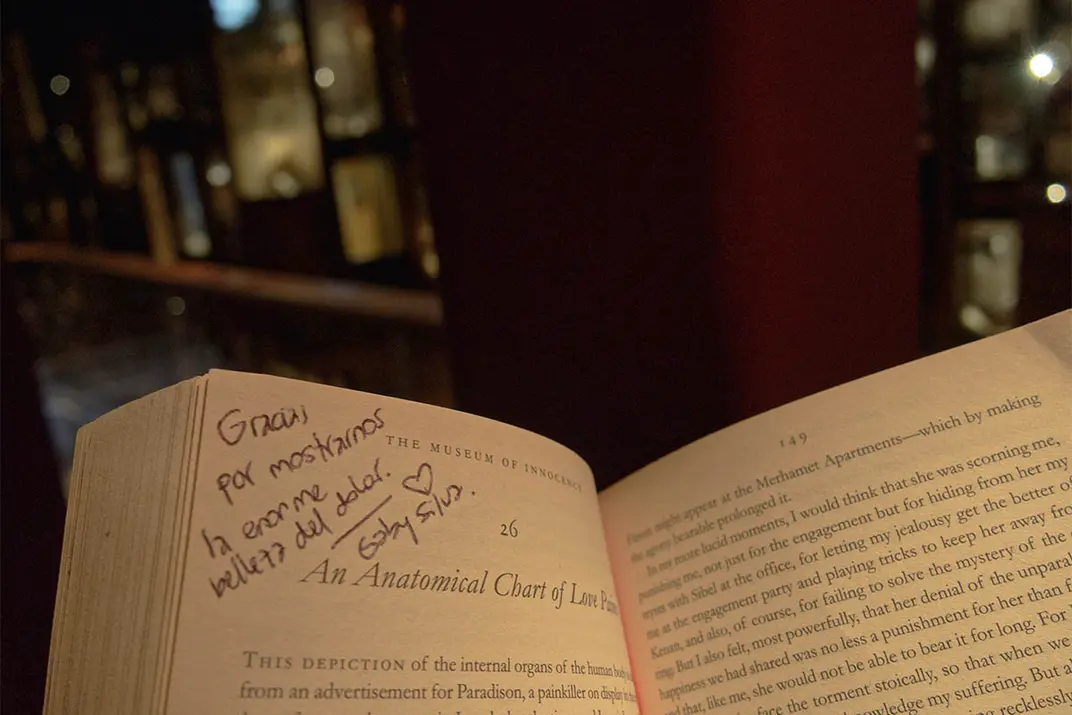 Gracias
por mostrarnos
la enorme
belleza del dolor.
Gaby Silva.
THE MUSEUM OF INNOCENCE
26
An Anatomical Chart of Love
THIS DEPICTION of the internal organs of the human body
from an advertisement for Paradison, a painkiller on display
149
might appear at the Merhamet Apartments—which by making
the agony bearable prolonged it.
In my more lucid moments, I would think that she was scorning me,
punishing me, not just for the engagement but for hiding from her my
with Sibel at the office, for letting my jealousy get the better of
me at the engagement party and playing tricks to keep her away
Kenan, and also, of course, for failing to solve the mystery of the
But I also felt, most powerfully, that her denial of the
happiness we had shared was no less a punishment for her than
and that, like me, she would not be able to bear it for long. For
face the torment stoically, so that when we
my suffering. But
recklessly